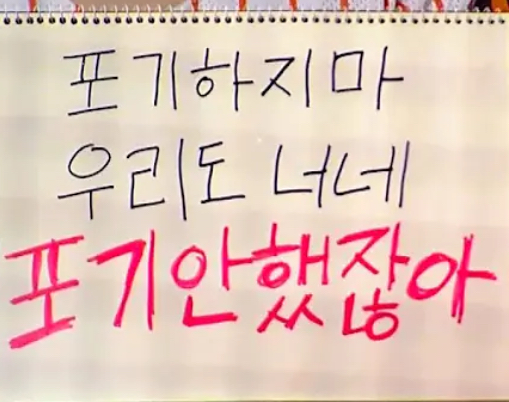 포기하지마
우리도 너네
포기안했잖아